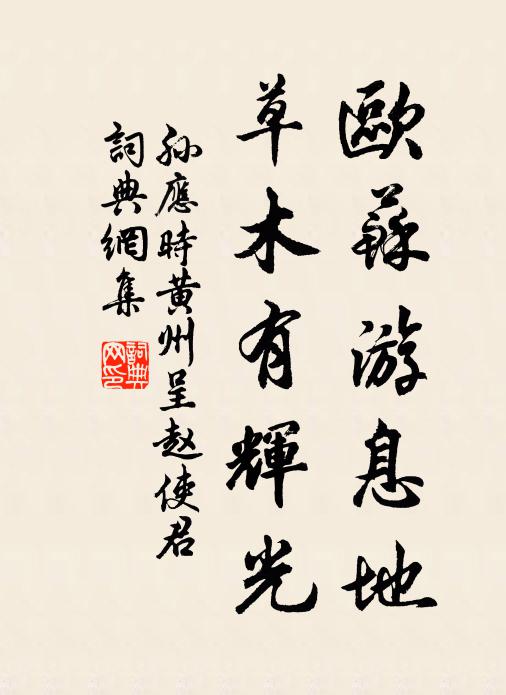 歐蘇游息地
草木有輝光
孫應時黄州呈赵使君
詞典網集
詞典网印